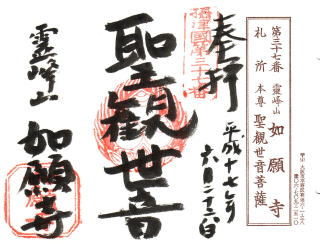 奉拝
平成十七年
六月二十六日
聖観世音
霊峰山
如願寺
攝津國第三十七番
第三十七番 霊峰山 如願寺
札所 本尊 聖観世音菩薩